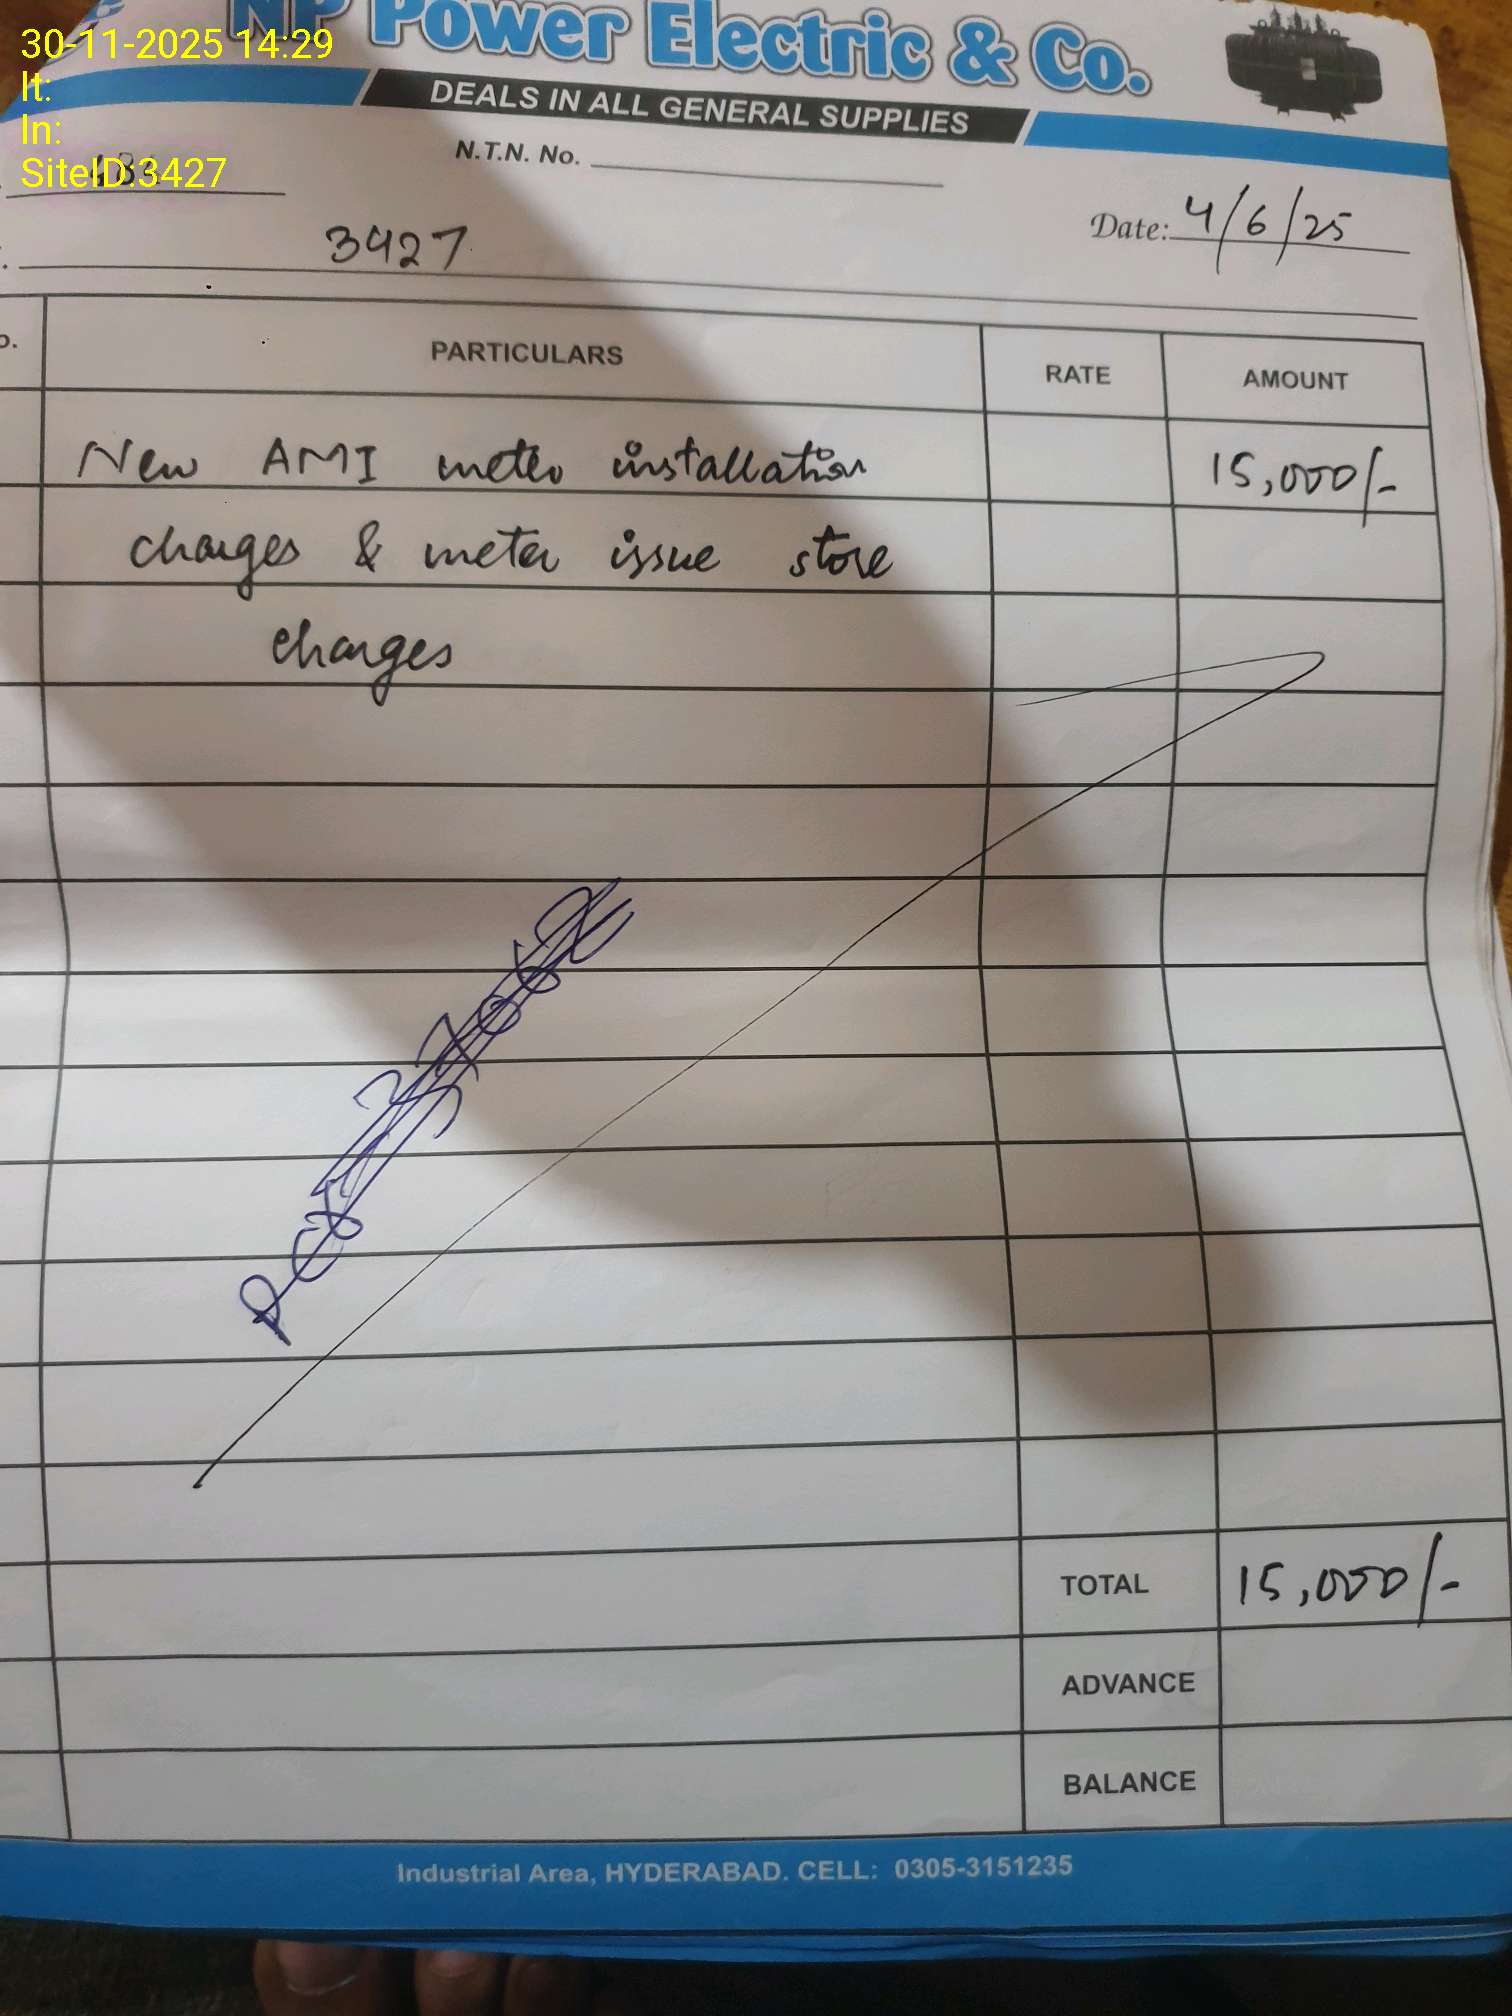 30-11-2025 14:29
lt:
ln:
SiteID:3427
NP Power Electric & Co.
DEALS IN ALL GENERAL SUPPLIES
N.T.N. No.
3427
Date: 4/6/25
PARTICULARS RATE AMOUNT
New AMI meter installation 15,000/-
charges & meter issue store
charges
TOTAL 15,000/-
ADVANCE
BALANCE
Industrial Area, HYDERABAD. CELL: 0305-3151235